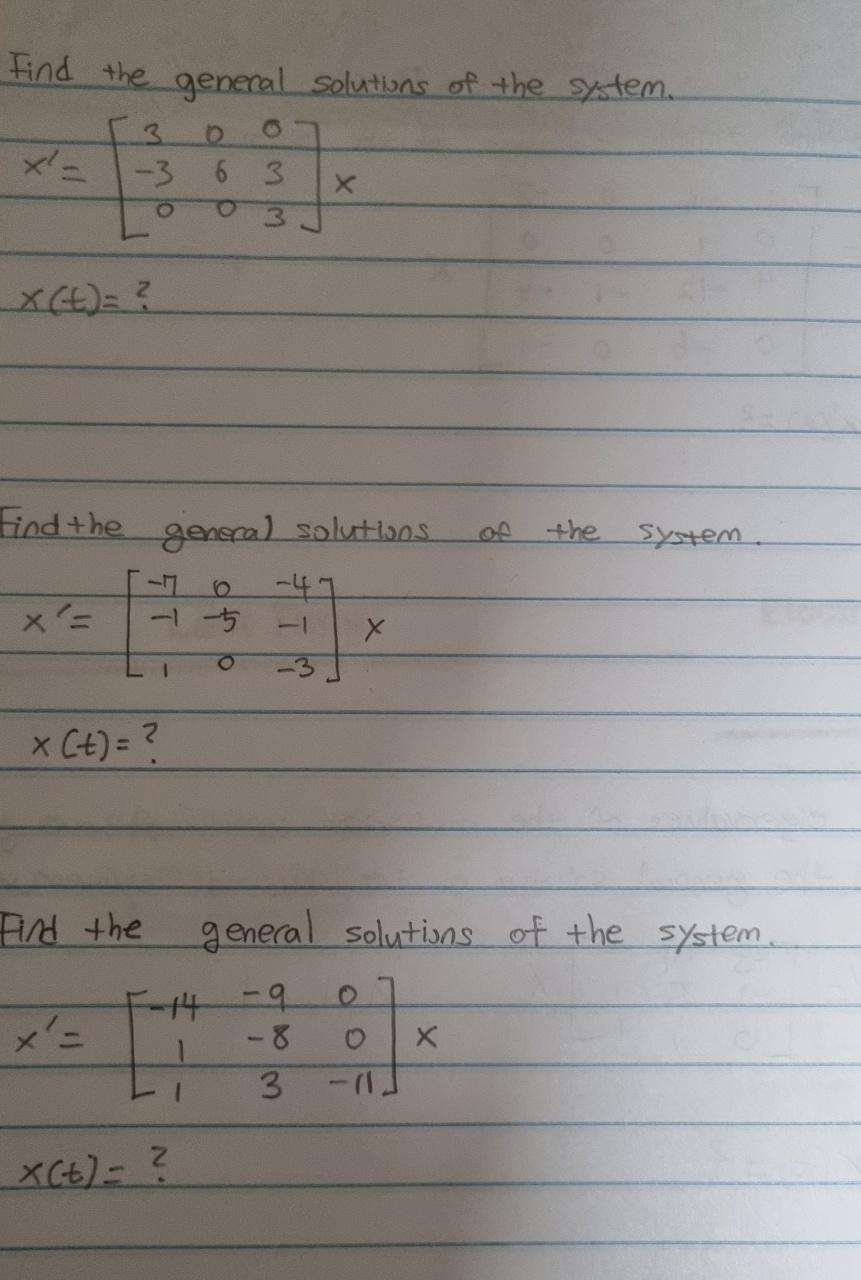 Find the general solutions of the system.
x' = [ 3 0 0
-3 6 3
0 0 3 ] x
x(t) = ?
Find the general solutions of the system.
x' = [ -7 0 -4
-1 -5 -1
1 0 -3 ] x
x(t) = ?
Find the general solutions of the system.
x' = [ -14 -9 0
1 -8 0
1 3 -11 ] x
x(t) = ?